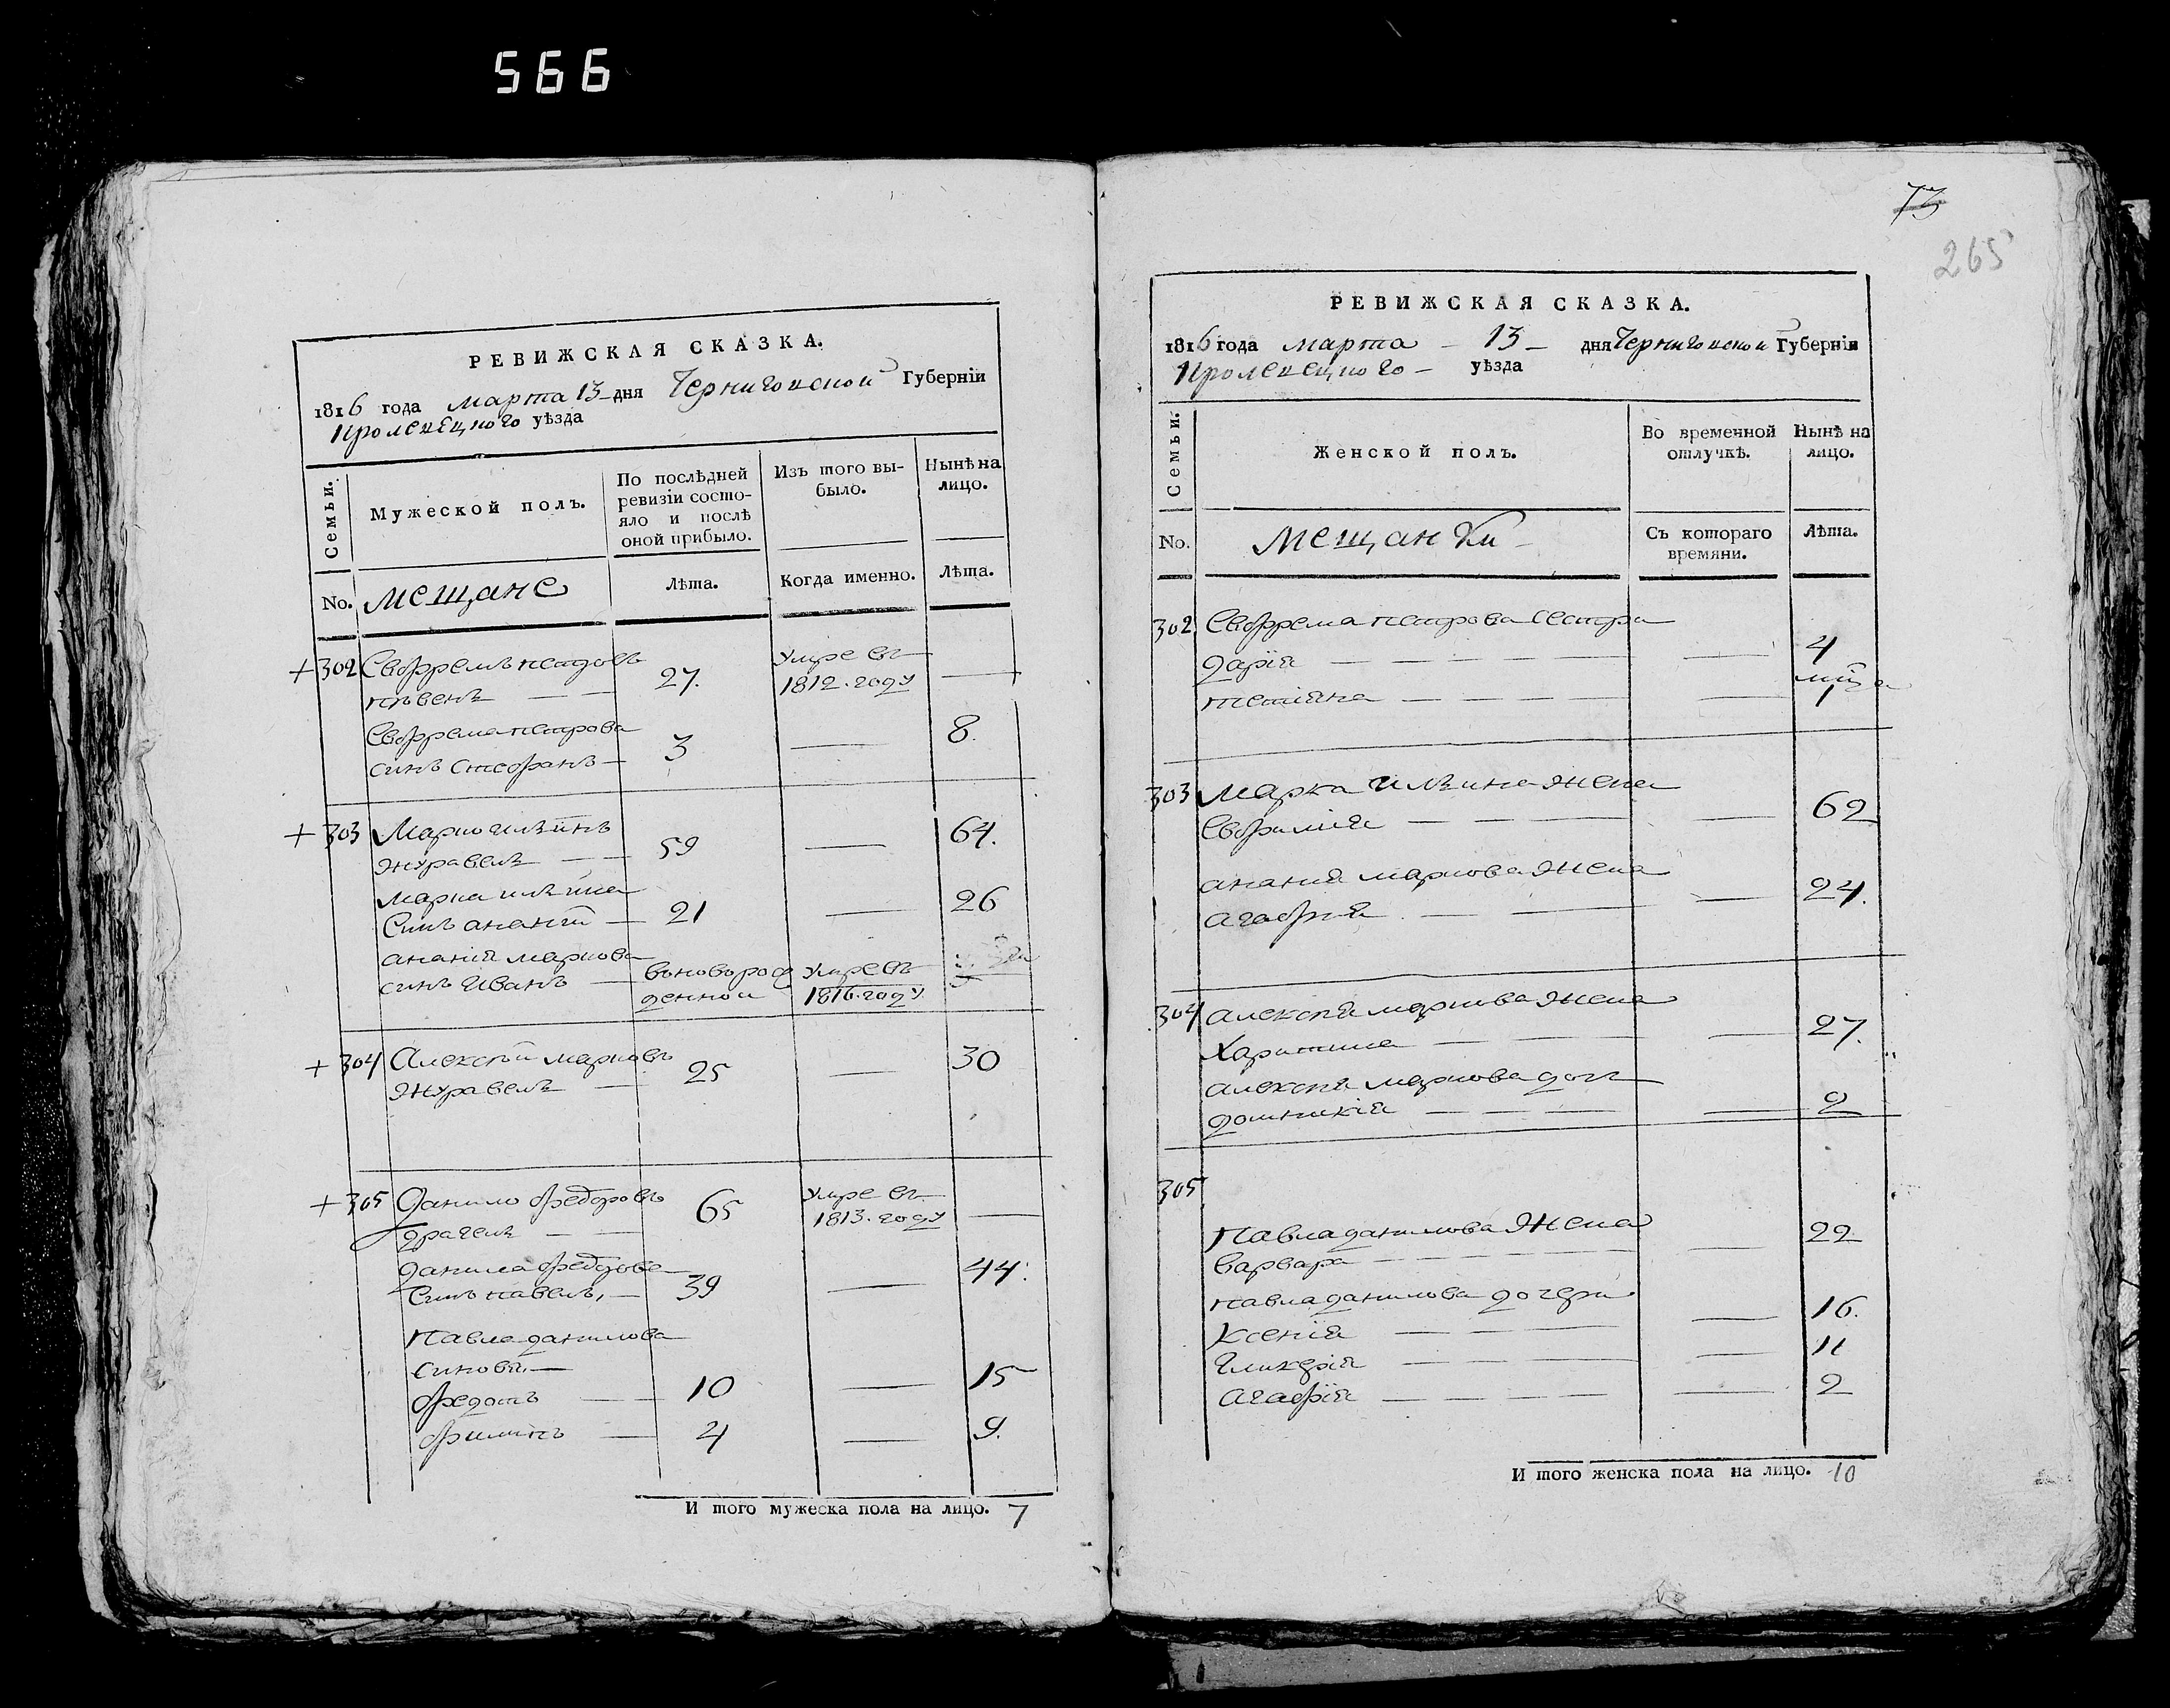 566
РЕВИЖСКАЯ СКАЗКА.
1816 года марта 13 дня Черниговской Губернiи
Кролевецкого уѣзда
Семьи.
Мужеской полъ.
По послѣдней ревизiи состо-
яло и послѣ
оной прибыло.
Изъ того вы-
было.
Нынѣ на
лицо.
No. мещане
Лѣта.
Когда именно.
Лѣта.
+ 302 Евфремъ петровъ
27. умре въ
1812. году
Евфрема петрова
синъ Стефанъ 3 8.
+ 303 Марко илѣинъ
журавель 59 64.
марка илѣина
Синъ ананiй 21 26
ананiя маркова
синъ Иванъ
вново рож
денной
умре въ
1816. году
+ 304 Алексѣй марковъ
журавель 25 30
+ 305 Данило федоровъ
драгель 65
умре въ
1813. году
данила федорова
Синъ павелъ, 39 44.
Павла данилова
синовя
федотъ 10 15
филипъ 4 9.
И того мужеска пола на лицо. 7
73
265
РЕВИЖСКАЯ СКАЗКА.
1816 года марта 13 дня Черниговской Губернiи
Кролевецкого уѣзда
Семьи.
Женской полъ.
Во временной
отлучкѣ.
Нынѣ на
лицо.
No. мещанки
Съ котораго
времяни.
Лѣта.
302 Евфрема петрова сестра
дарiя 4
тетiяна 1
303 Марка илѣина жена
Евфимiя 62
ананiя маркова жена
агафiя 24.
304 алексѣя маркова жена
Харитина 27.
алексѣя маркова доч
домникiя 2
305
Павла данилова жена
варвара 22
павла данилова дочери
Ксенiя 16.
гликерiя 11
агафiя 2
И того женска пола на лицо. 10